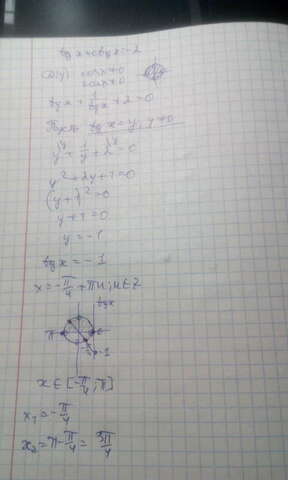 tgx+ctgx=-2
cosx≠0
sinx≠0
tgx+1/tgx+2=0
Пусть tgx=y, y≠0
y+1/y+2=0
y²+2y+1=0
(y+1)²=0
y+1=0
y=-1
tgx=-1
x=-π/4+πn; n∈Z
tgx
π
-1
x∈[-π/4; π]
x₁=-π/4
x₂=π-π/4=3π/4